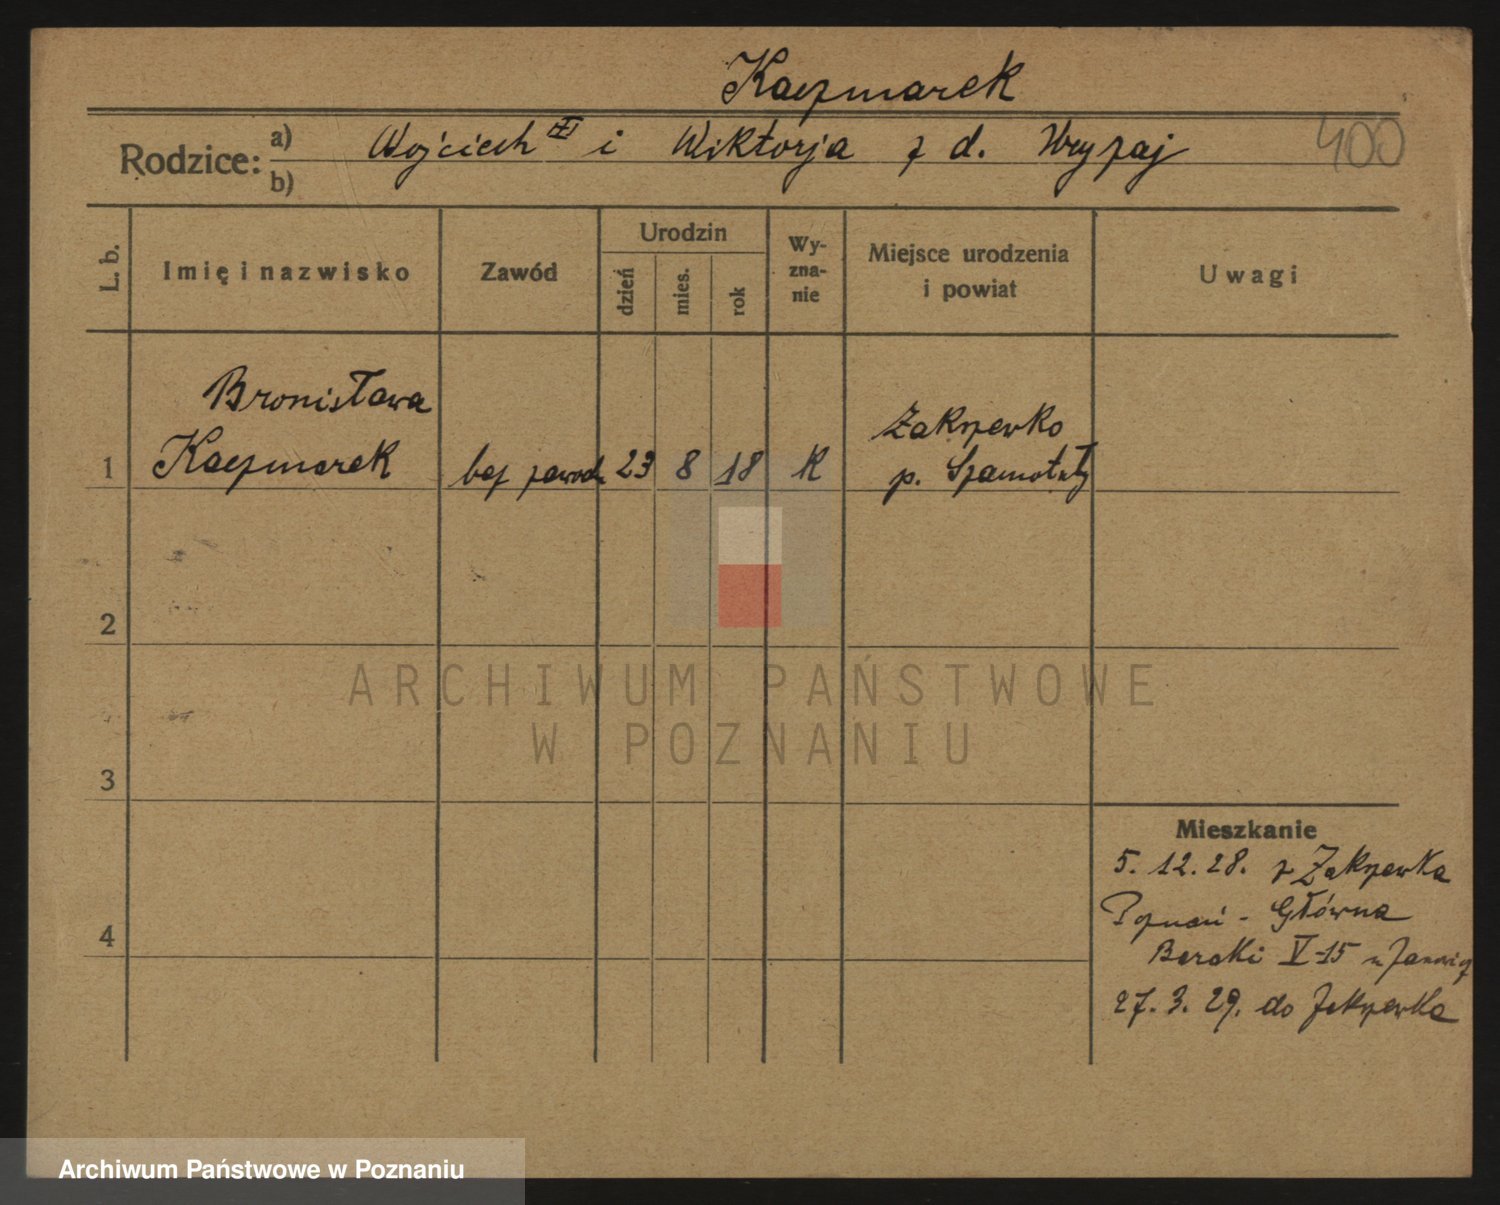 Kaczmarek
Rodzice: a) Wojciech i Wiktorja z d.
b)
400
L. b.
Imię i nazwisko
Zawód
Urodzin
dzień
mies.
rok
Wy-
zna-
nie
Miejsce urodzenia
i powiat
Uwagi
Bronisława
1 Kaczmarek
bez zawodu
23 8 18 K
Zakrzewko
p. Szamotuły
2
3
4
Mieszkanie
5. 12. 28. z Zakrzewka
Poznań - Główna
Baraki V-15
27. 3. 29. do Zakrzewka
ARCHIWUM PAŃSTWOWE
W POZNANIU
Archiwum Państwowe w Poznaniu